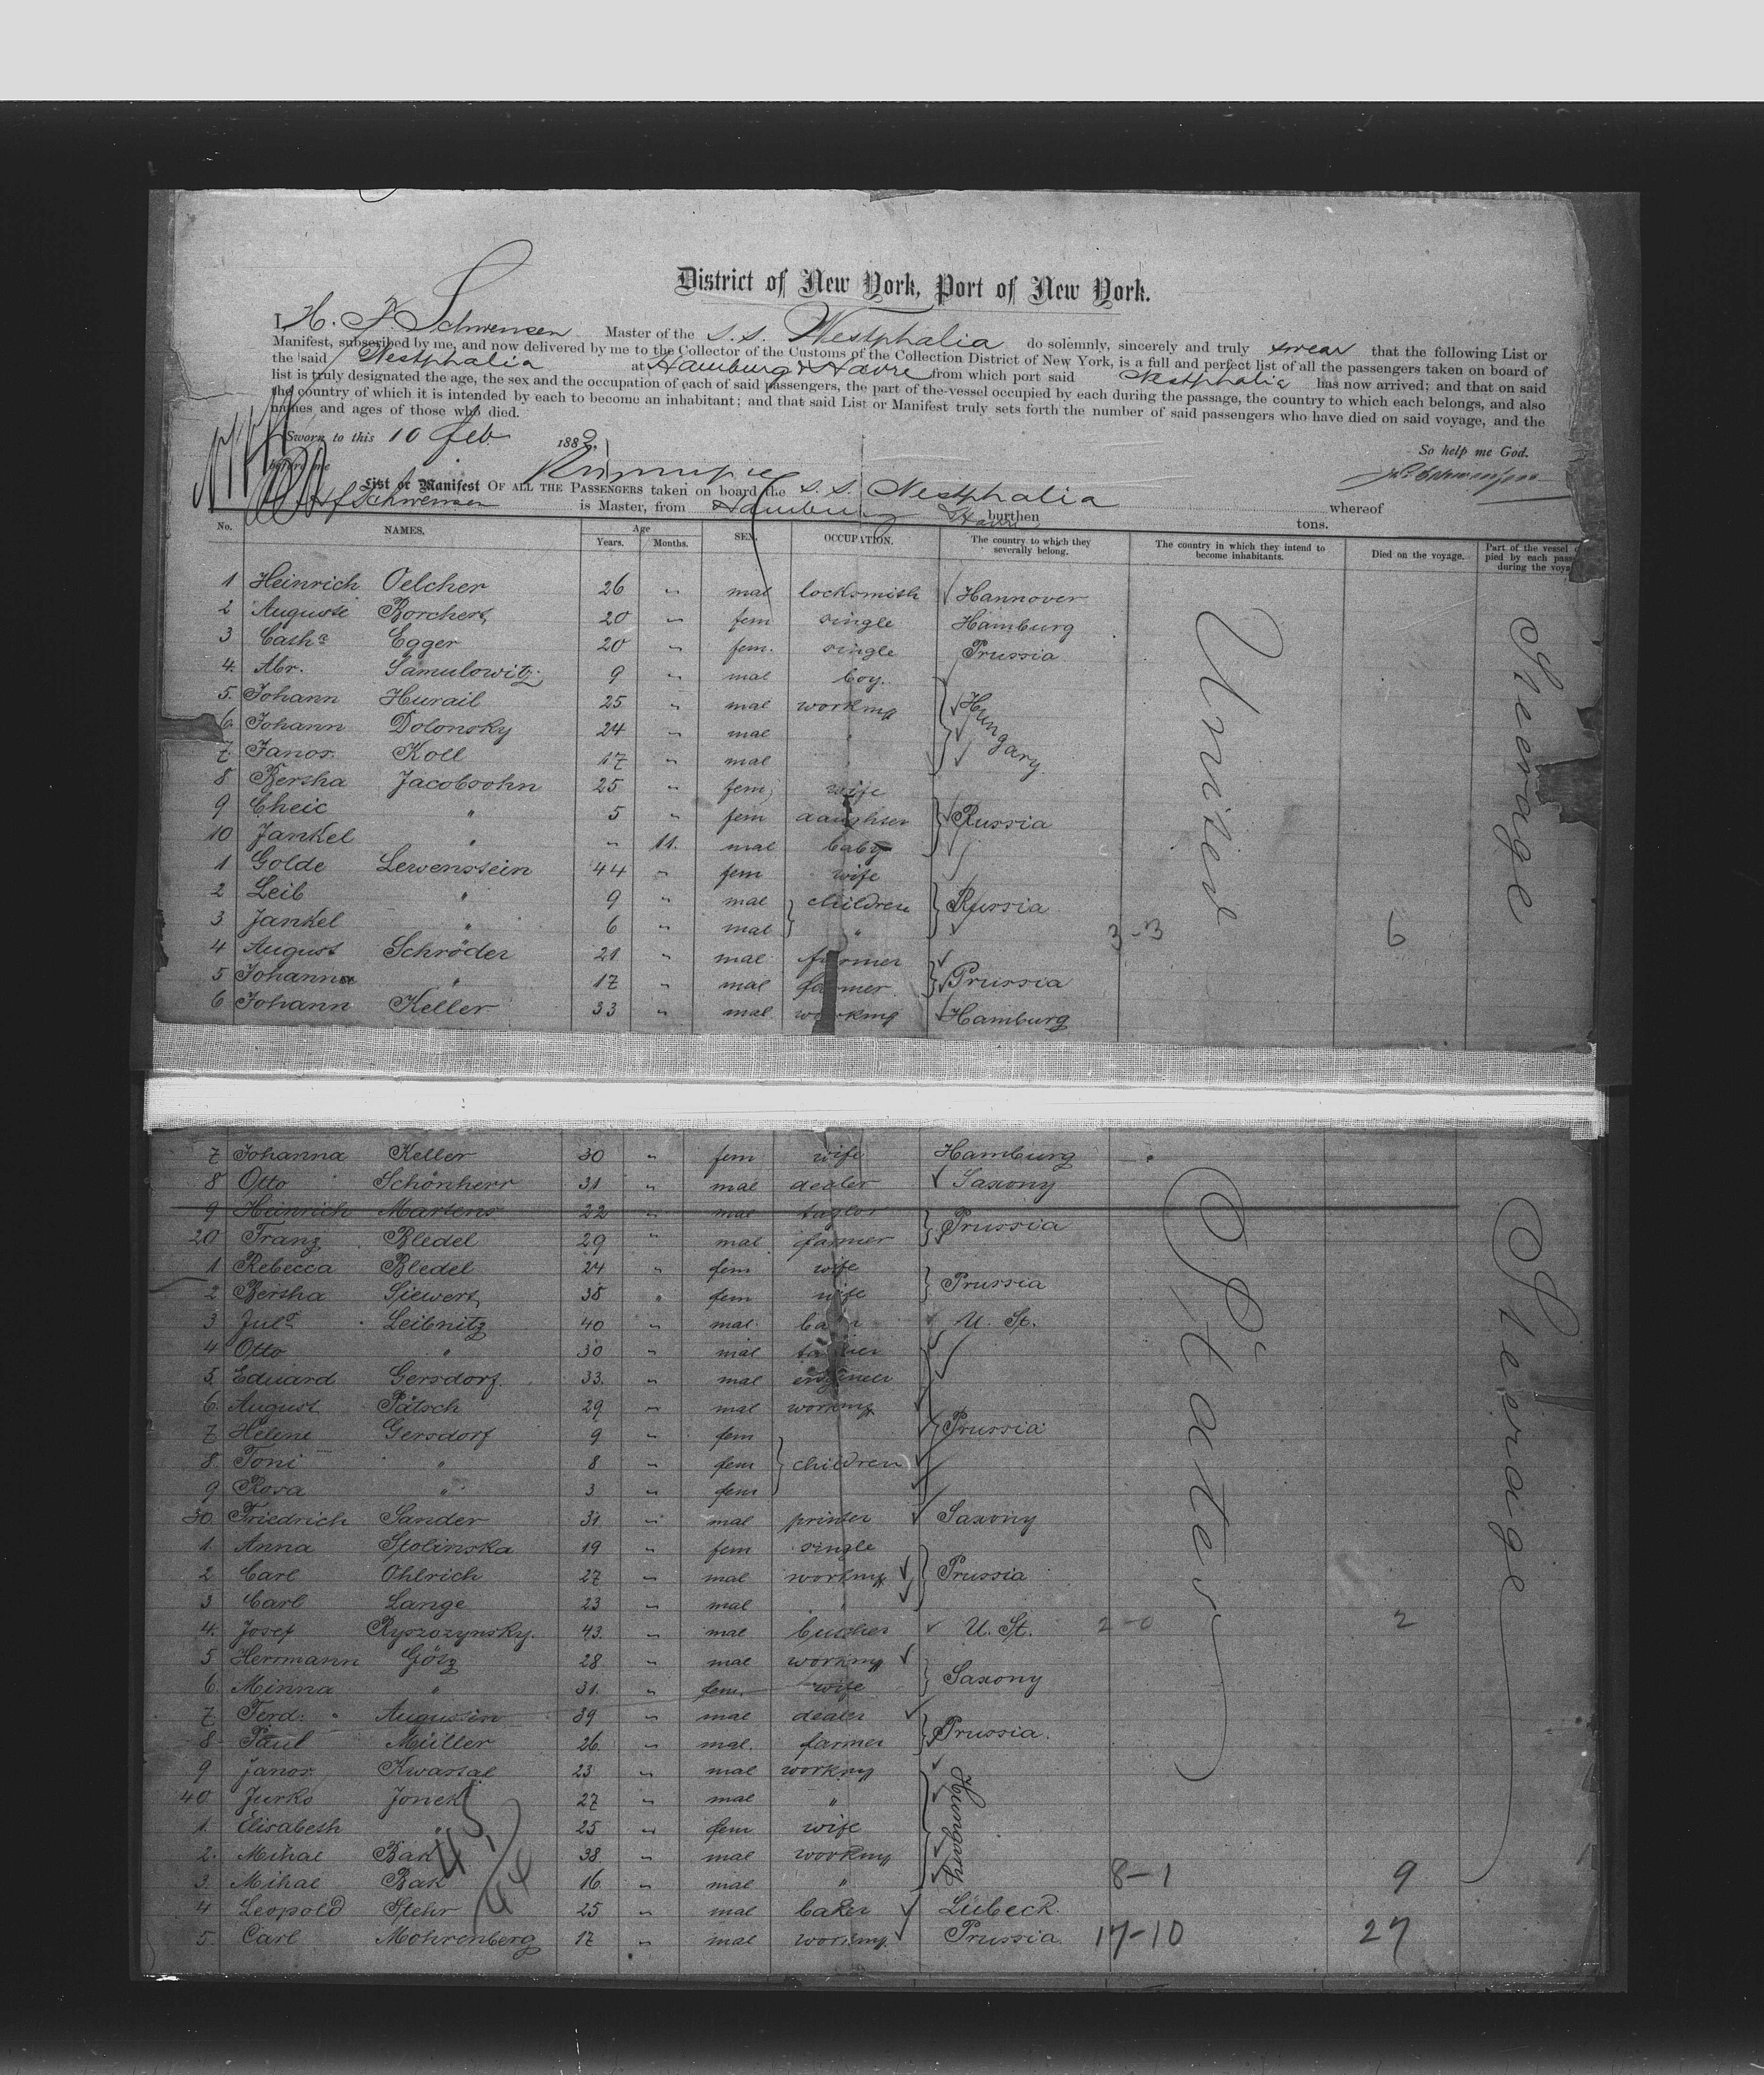 District of New York, Port of New York.
I, H. F. Schwensen Master of the S. S. Westphalia do solemnly, sincerely and truly swear that the following List or
Manifest, subscribed by me, and now delivered by me to the Collector of the Customs of the Collection District of New York, is a full and perfect list of all the passengers taken on board of
the said Westphalia at Hamburg & Havre from which port said Westphalia has now arrived; and that on said
list is truly designated the age, the sex and the occupation of each of said passengers, the part of the vessel occupied by each during the passage, the country to which each belongs, and also
the country of which it is intended by each to become an inhabitant; and that said List or Manifest truly sets forth the number of said passengers who have died on said voyage, and the
names and ages of those who died.
Sworn to this 10 Feb 188
So help me God.
before me
List or Manifest OF ALL THE PASSENGERS taken on board the S. S. Westphalia whereof
H F Schwensen is Master, from Hamburg Havre burthen tons.
No. NAMES. Age Years. Months. SEX. OCCUPATION. The country to which they severally belong. The country in which they intend to become inhabitants. Died on the voyage. Part of the vessel
1 Heinrich Oelcher 26 " mal locksmith Hannover
2 Auguste Borchert 20 " fem single Hamburg
3 Cath.e Egger 20 " fem. single Prussia
4. Abr. Samulowitz 9 " mal boy.
5. Johann Hurail 25 " mal working Hungary
6. Johann Dolonsky 24 " mal "
7. Janos Koll 17 " mal
8 Bertha Jacobsohn 25 " fem wife
9 Cheie " 5 " fem daughter Russia
10 Jankel " " 11. mal baby
1 Golde Lewenstein 44 " fem wife
2 Leib " 9 " mal children Russia
3 Jankel " 6 " mal " 3-3 6
4 August Schröder 21 " mal farmer
5 Johann " 17 " mal farmer Prussia
6 Johann Keller 33 " mal working Hamburg
United
Steerage
7 Johanna Keller 30 " fem wife Hamburg
8 Otto Schönherr 31 " mal dealer Saxony
9 Heinrich Martens 22 " mal taylor
20 Franz Bledel 29 " mal farmer Prussia
1 Rebecca Bledel 24 " fem wife
2 Bertha Siewert 35 " fem wife Prussia
3 Jul. Leibnitz 40 " mal U. St.
4 Otto " 30 " mal
5. Eduard Gersdorf 33. " mal engineer
6. August Pätsch 29 " mal working
7 Helene Gersdorf 9 " fem Prussia
8 Toni " 8 " fem children
9 Rosa " 3 " fem
30 Friedrich Sander 31 " mal printer Saxony
1. Anna Stolinska 19 " fem single
2 Carl Ohlrich 27 " mal working Prussia
3 Carl Lange 23 " mal "
4. Josef Ryszozynsky. 43. " mal butcher U. St. 2-0 2
5 Herrmann Götz 28 " mal working
6. Minna " 31. " fem. wife Saxony
7 Ferd. Augustin 39 " mal dealer
8 Paul Müller 26. " mal. farmer Prussia.
9 Janos Kwassal 23 " mal working
40 Jurko Jonek 27 " mal "
1. Elisabeth " 25 " fem wife Hungary
2. Mihal Bak 38 " mal working
3. Mihal Bak 16 " mal " 8-1 9
4 Leopold Stehr 25 " mal baker Lübeck
5. Carl Mohrenberg 17 " mal working. Prussia 17-10 27
States
Steerage